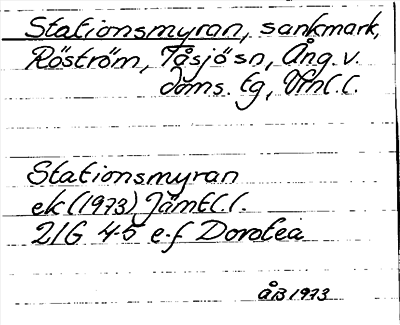 Stationsmyran, sankmark,
Röström, Tåsjö sn, Ång. v.
doms. tg, Vrnl.l.
Stationsmyran
ek (1973) Jämtl.l.
21G 4-5 e-f Dorotea
åB 1973